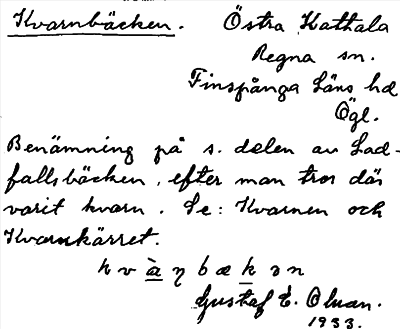 Kvarnbäcken. Östra Kathala
Regna sn.
Finspånga Läns hd
Ögl.
Benämning på s. delen av Lad-
fallsbäcken, efter man tror där
varit kvarn. Se: Kvarnen och
Kvarnkärret.
k v à η b æ k ə n
Gustaf E. Olsson.
1933.